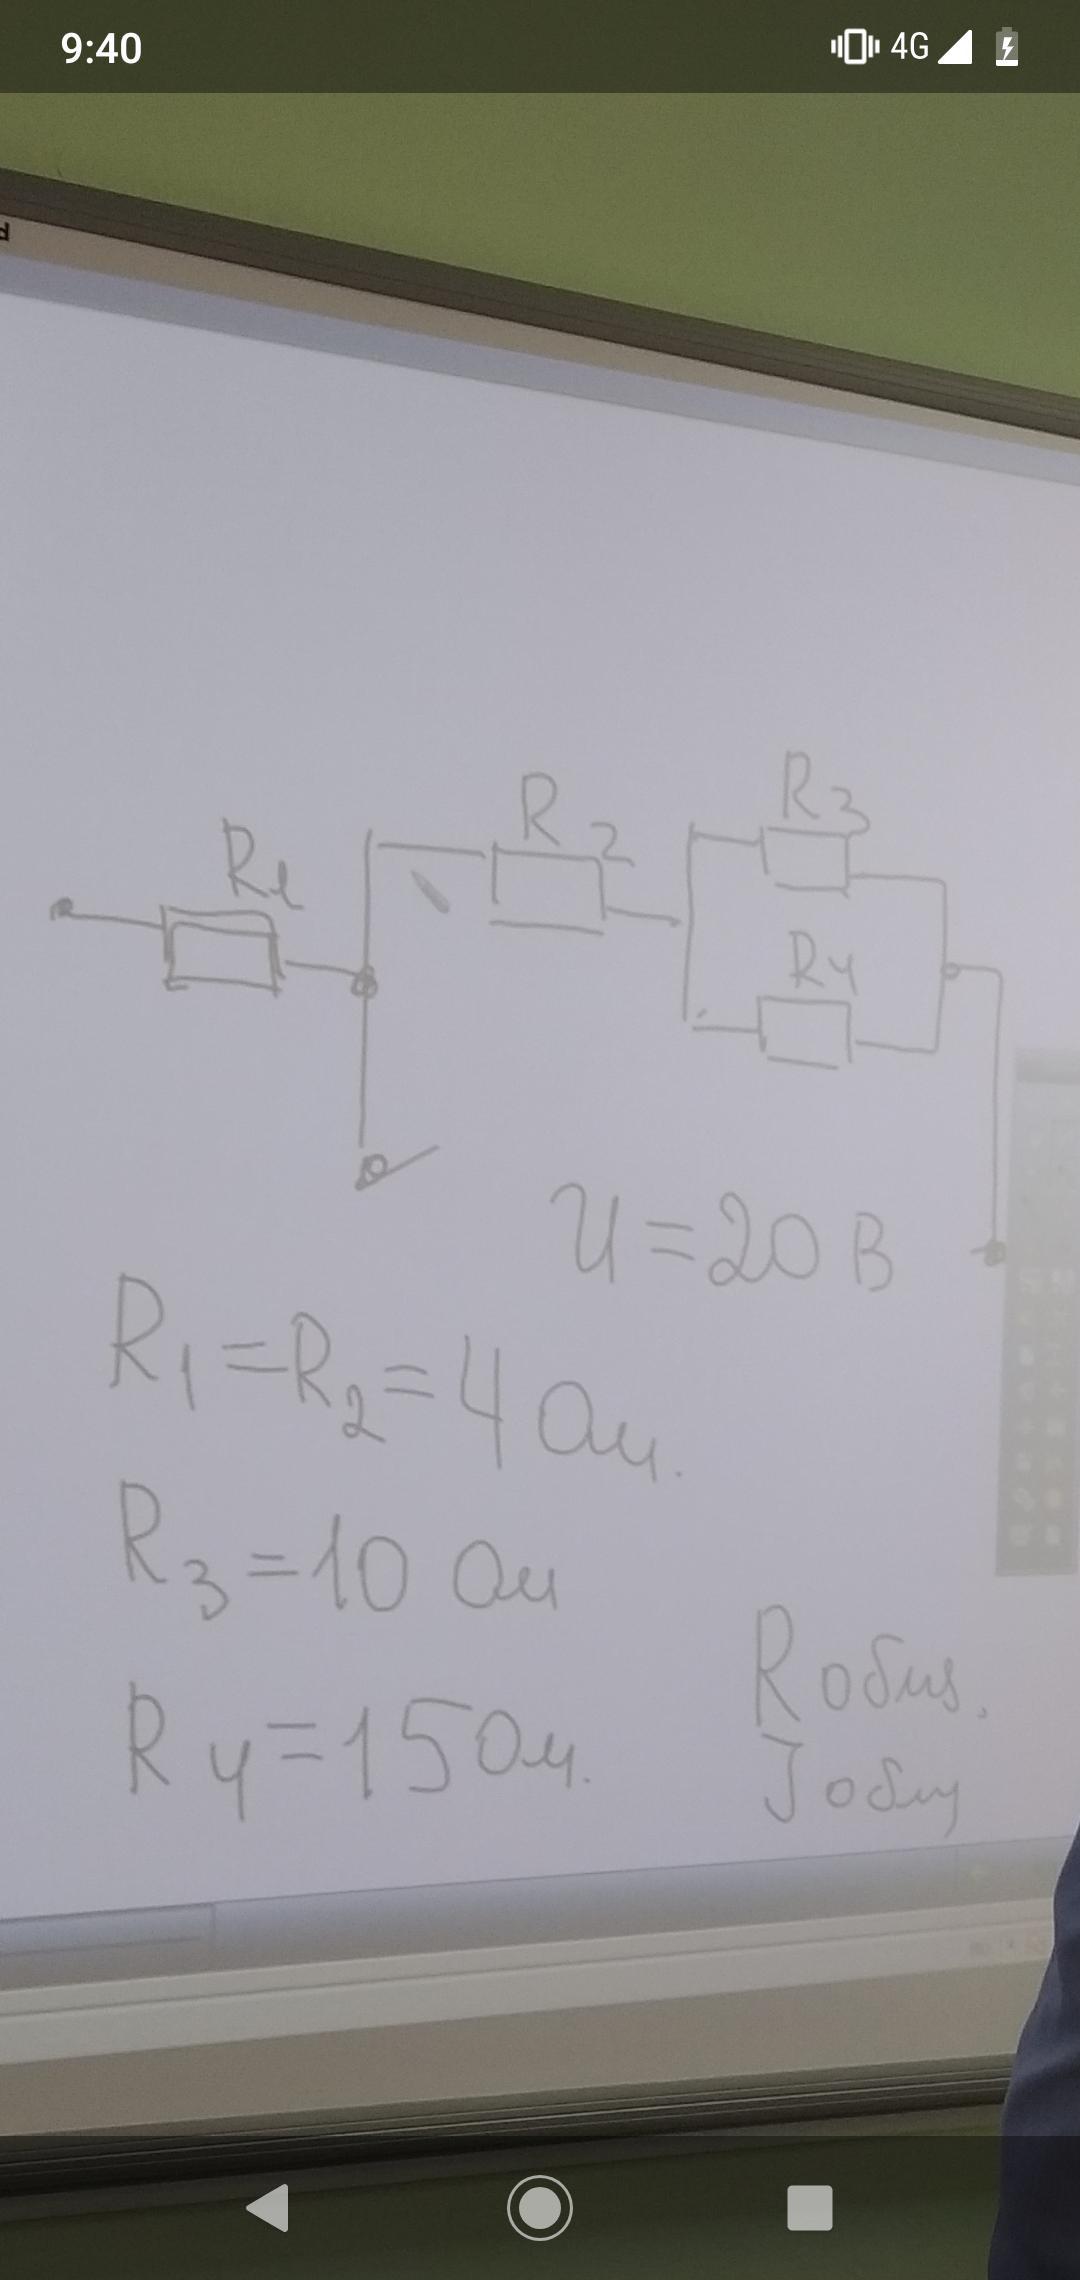 9:40
4G
d
R1
R2
R3
R4
U=20 В
R1=R2=4 Ом.
R3=10 Ом
R4=15 Ом.
Rобщ.
Jобщ